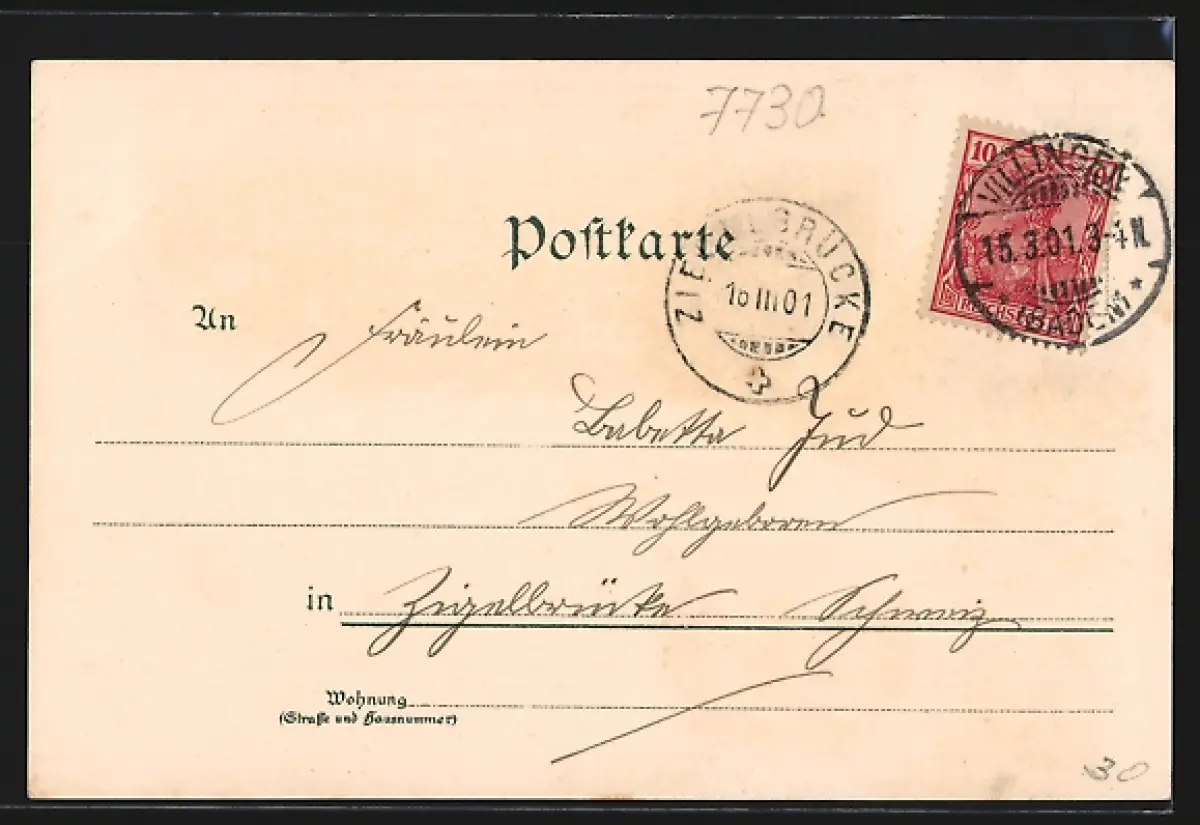 7730
10
VILLINGEN
15.3.01.3-4 N.
* (BADEN) *
REICHS
Postkarte
ZIEGELBRÜCKE
16 III 01
An Fräulein
Babetta Jud
Wohlgeboren
in Zigelbrücke Schweiz
Wohnung
(Straße und Hausnummer)
30